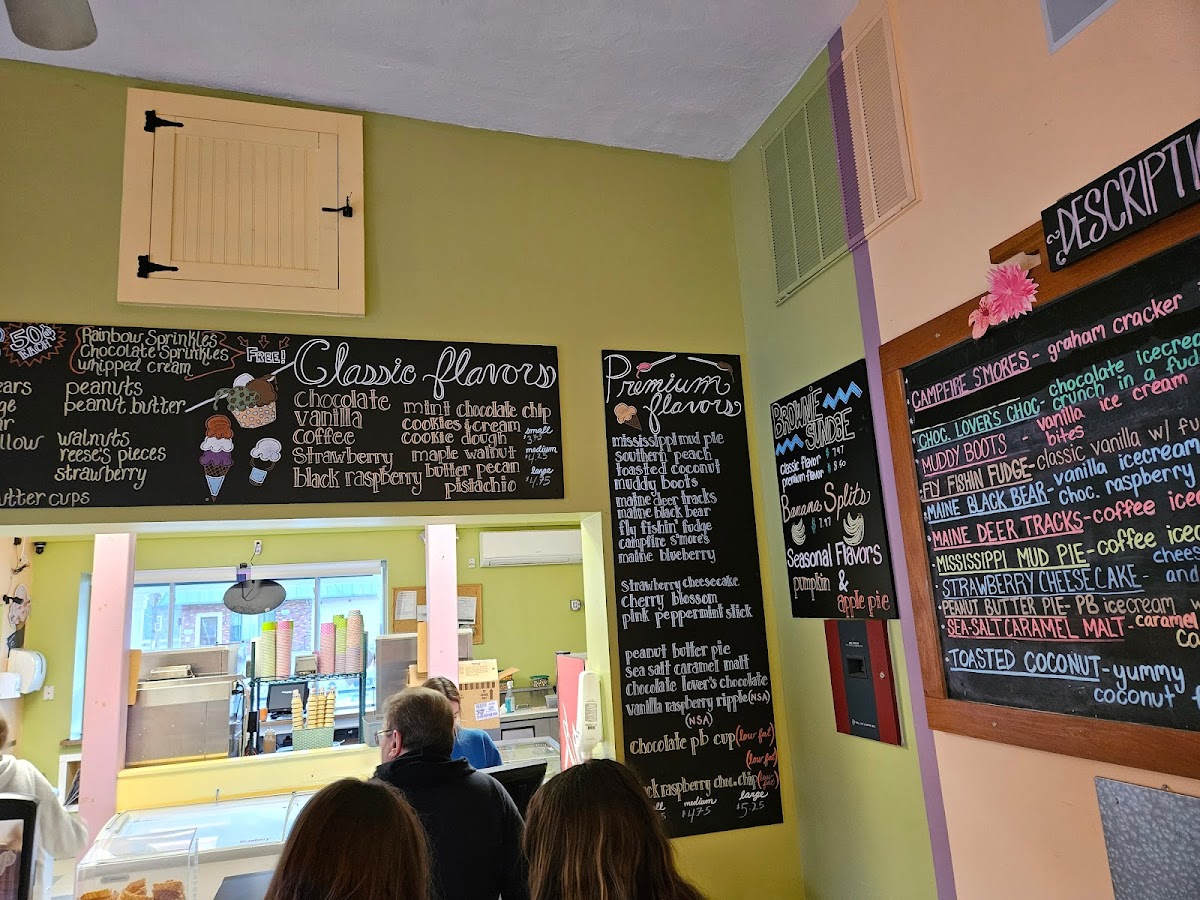 50¢
EACH
Rainbow Sprinkles
Chocolate Sprinkles
whipped cream
FREE!
peanuts
peanut butter
walnuts
reese's pieces
strawberry
Classic flavors
chocolate
vanilla
coffee
strawberry
black raspberry
mint chocolate chip
cookies & cream
cookie dough
maple walnut
butter pecan
pistachio
small
medium
$4.25
large
$4.75
Premium
flavors
mississippi mud pie
southern peach
toasted coconut
muddy boots
maine deer tracks
maine black bear
fly fishin' fudge
campfire s'mores
maine blueberry
strawberry cheesecake
cherry blossom
pink peppermint stick
peanut butter pie
sea salt caramel malt
chocolate lover's chocolate
vanilla raspberry ripple (NSA)
(NSA)
chocolate pb cup (low fat)
(low fat)
raspberry choc. chip
medium
$4.75
large
$5.25
BROWNIE
SUNDAE
classic flavor $7.97
premium flavor $8.60
Banana Splits
$7.97
Seasonal Flavors
pumpkin &
apple pie
CAMPFIRE S'MORES - graham cracker
CHOC. LOVER'S CHOC - chocolate icecrea
crunch in a fud
MUDDY BOOTS - vanilla ice cream
bites
FLY FISHIN' FUDGE - classic vanilla w/ fu
MAINE BLACK BEAR - vanilla icecream
choc. raspberry
MAINE DEER TRACKS - coffee ice
MISSISSIPPI MUD PIE - coffee icec
STRAWBERRY CHEESECAKE - chees
and
PEANUT BUTTER PIE - PB icecream
SEA-SALT CARAMEL MALT - caramel
TOASTED COCONUT - yummy
coconut